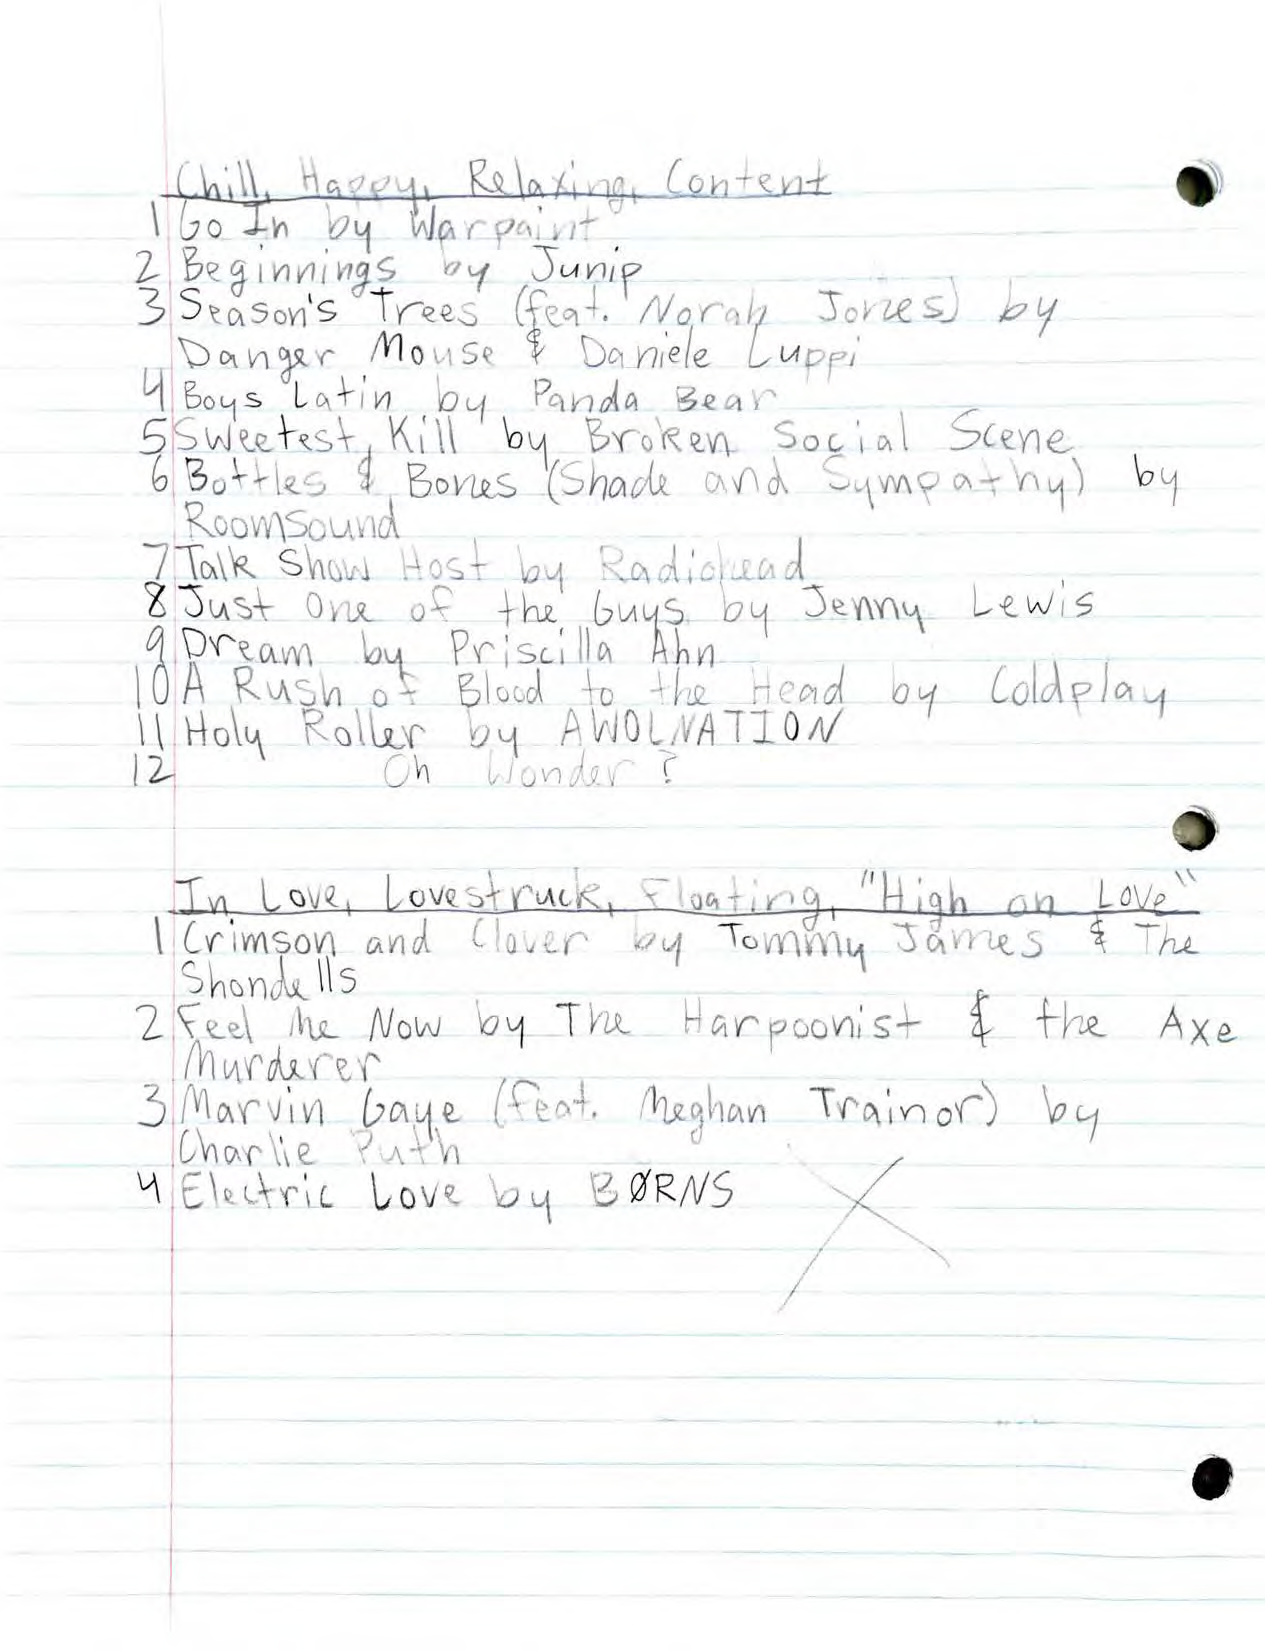 Chill, Happy, Relaxing, Content
1 Go In by Warpaint
2 Beginnings by Junip
3 Season's Trees (feat. Norah Jones) by
Danger Mouse & Daniele Luppi
4 Boys Latin by Panda Bear
5 Sweetest Kill by Broken Social Scene
6 Bottles & Bones (Shade and Sympathy) by
RoomSound
7 Talk Show Host by Radiohead
8 Just One of the Guys by Jenny Lewis
9 Dream by Priscilla Ahn
10 A Rush of Blood to the Head by Coldplay
11 Holy Roller by AWOLNATION
12 Oh Wonder?
In Love, Lovestruck, Floating, "High on Love"
1 Crimson and Clover by Tommy James & The
Shondells
2 Feel Me Now by The Harpoonist & the Axe
Murderer
3 Marvin Gaye (feat. Meghan Trainor) by
Charlie Puth
4 Electric Love by BØRNS